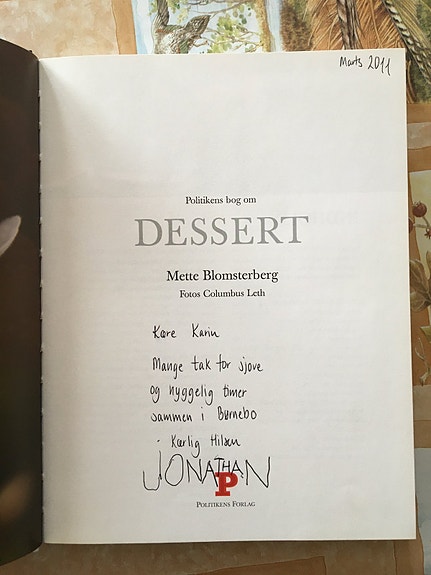 Marts 2011
Politikens bog om
DESSERT
Mette Blomsterberg
Fotos Columbus Leth
Kære Karin
Mange tak for sjove
og hyggelig timer
sammen i Børnebo
Kærlig Hilsen
JONATHAN
P
POLITIKENS FORLAG